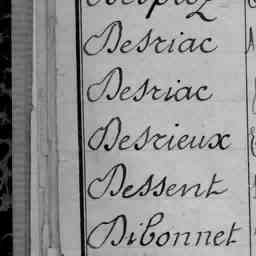 Desriac
Desriac
Desrieux
Dessent
Dibonnet